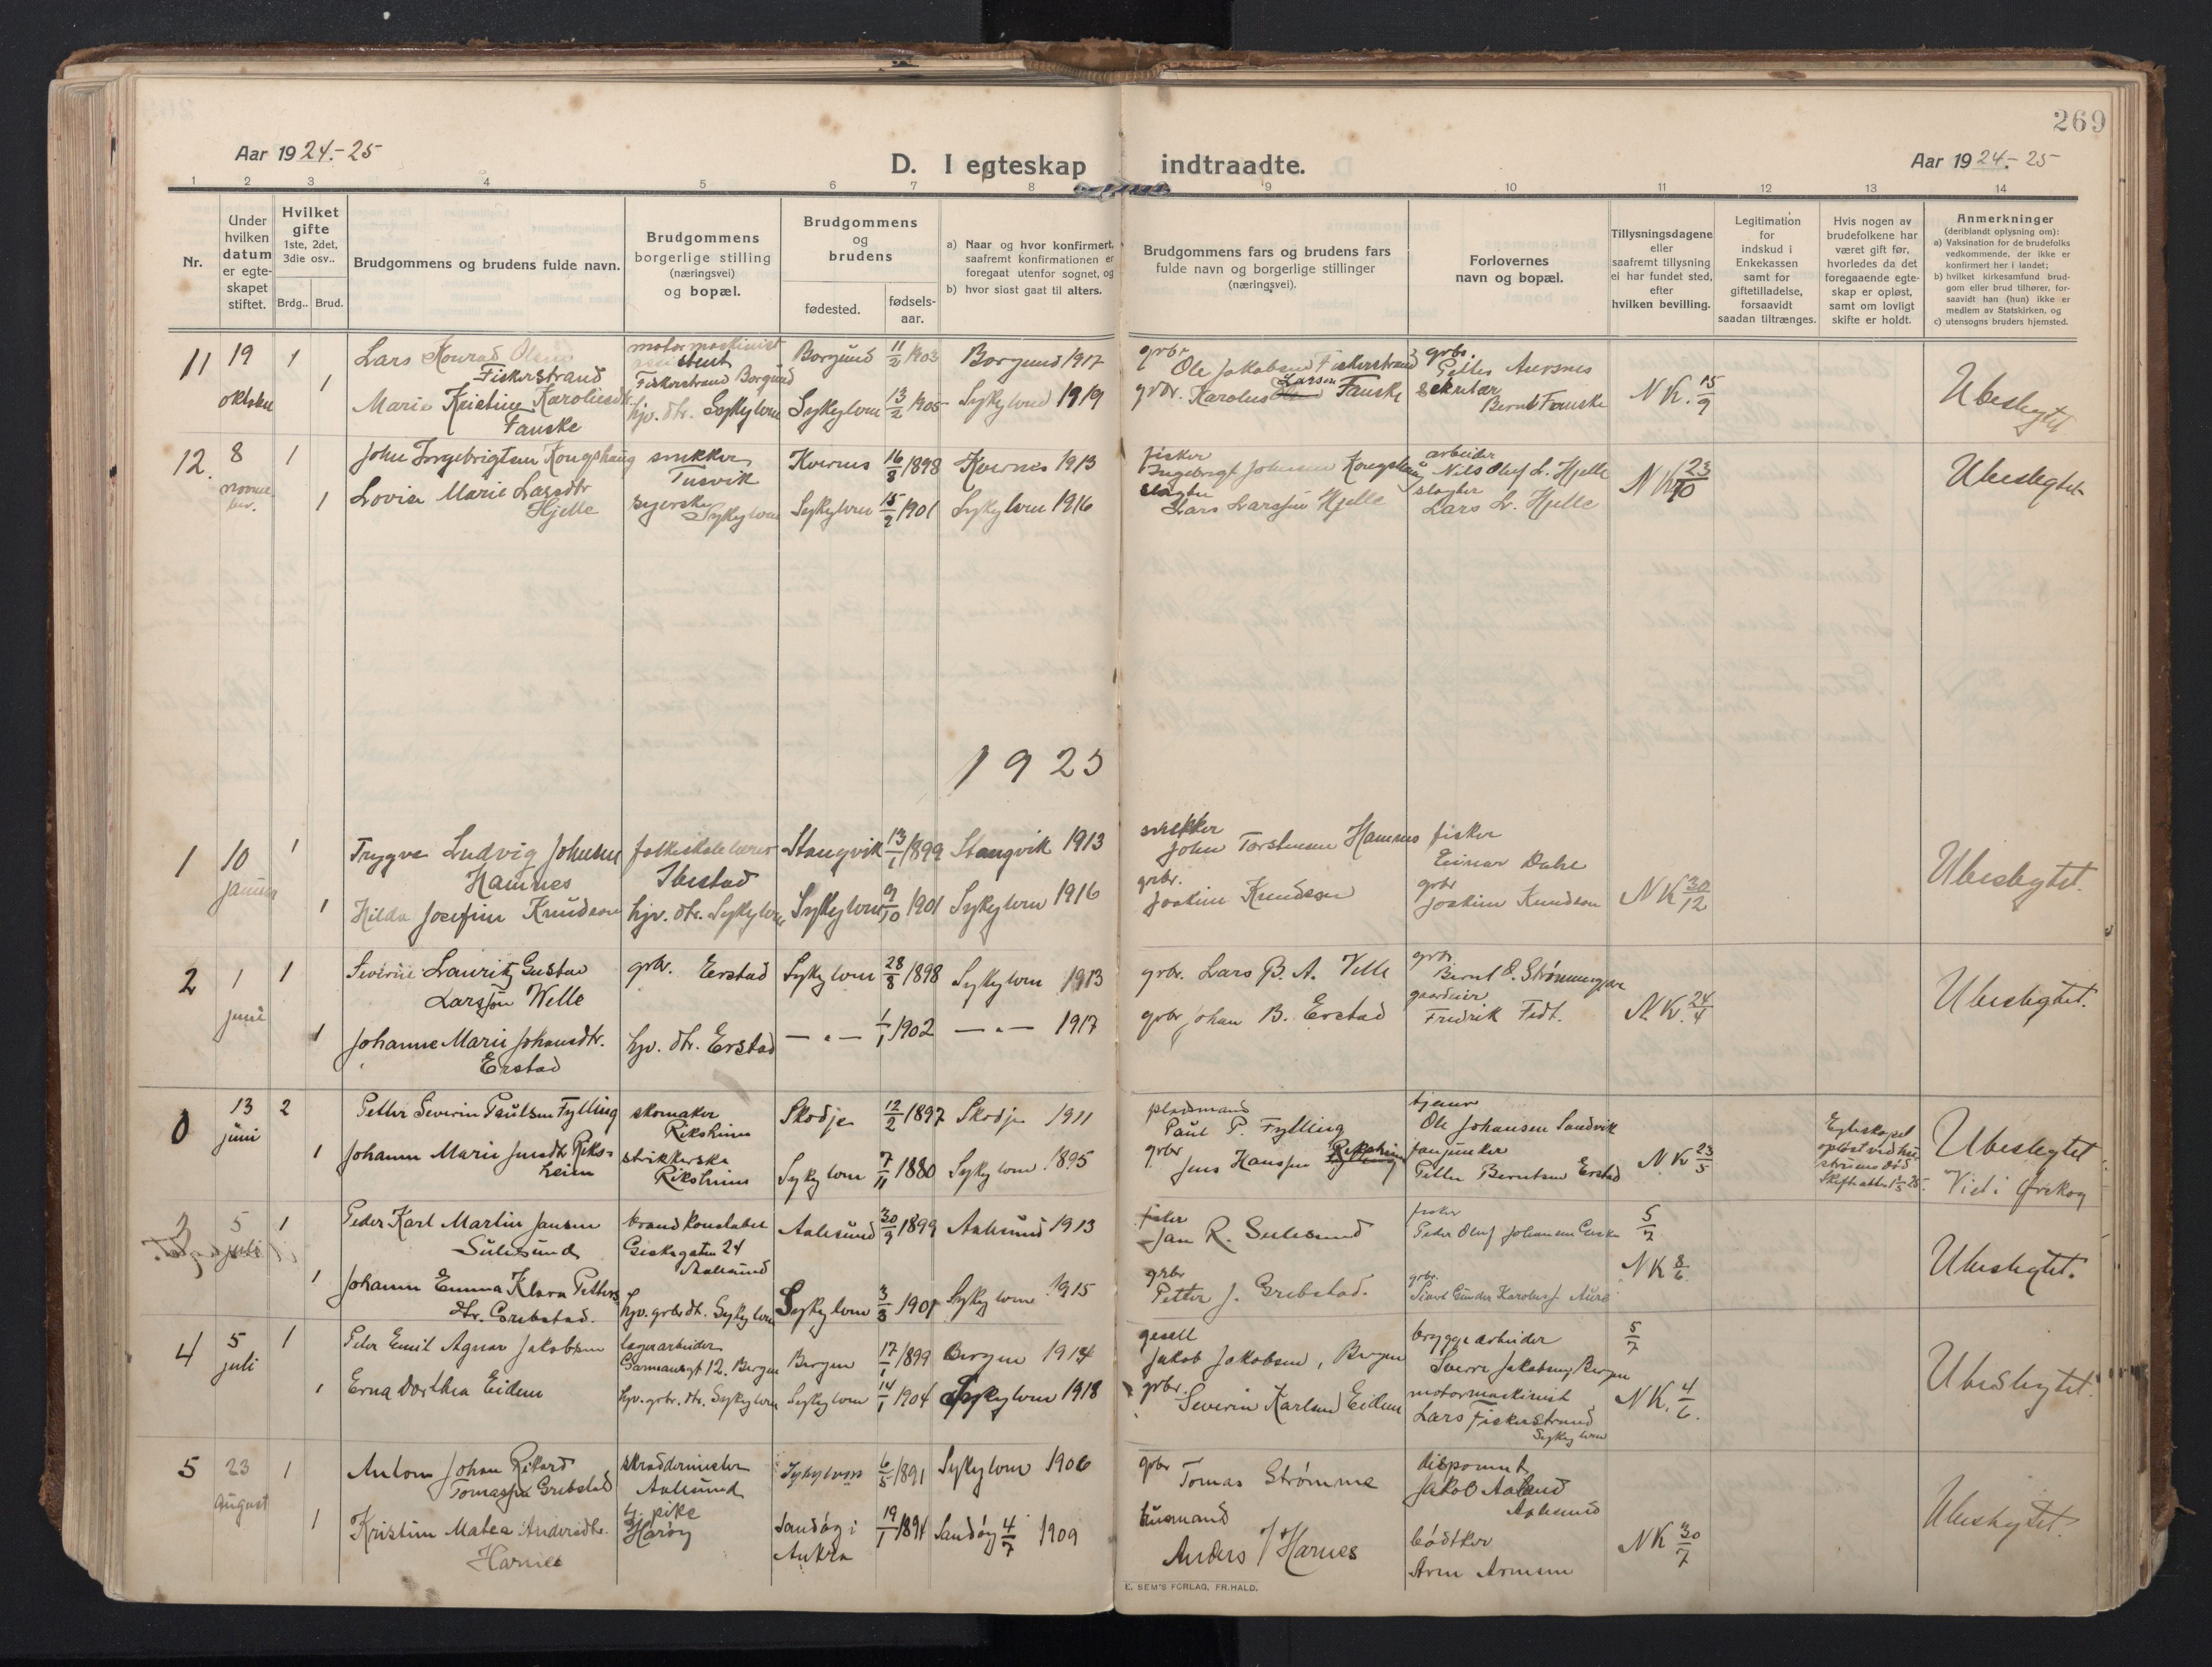 269
Aar 1924.-25
D. I egteskap indtraadte.
Aar 1924.-25
1 2 3 4 5 6 7 8 9 10 11 12 13 14
Nr.
Under hvilken datum er egteskapet stiftet.
Hvilket gifte 1ste, 2det, 3die osv..
Brdg.. Brud.
Brudgommens og brudens fulde navn.
Brudgommens borgerlige stilling (næringsvei) og bopæl.
Brudgommens og brudens
fødested.
fødsels-aar.
a) Naar og hvor konfirmert, saafremt konfirmationen er foregaat utenfor sognet, og
b) hvor sidst gaat til alters.
Brudgommens fars og brudens fars fulde navn og borgerlige stillinger (næringsvei).
Forlovernes navn og bopæl.
Tillysningsdagene eller saafremt tillysning ei har fundet sted, efter hvilken bevilling.
Legitimation for indskud i Enkekassen samt for giftetilladelse, forsaavidt saadan tiltrænges.
Hvis nogen av brudefolkene har været gift før, hvorledes da det foregaaende egteskap er opløst, samt om lovligt skifte er holdt.
Anmerkninger (deriblandt oplysning om):
a) Vaksination for de brudefolks vedkommende, der ikke er konfirmert her i landet;
b) hvilket kirkesamfund brudgom eller brud tilhører, forsaavidt han (hun) ikke er medlem av Statskirken, og
c) utensogns bruders hjemsted.
11 19 oktober 1 Lars Konrad Olsen Fiskerstrand motormaskinist Fiskerstrand Borgund Borgund 11/2 1903 Borgund 1917 grbr Ole Jakobsen Fiskerstrand grbr. Petter Aursnes
1 Marie Kristine Karolusdtr Fauske hjv. dtr. Sykylven Sykylven 13/2 1905 Sykylven 1919 grbr. Karolus Larsen Fauske sekretær Bernt Fauske N K. 15/9 Ubeslegtet
12. 8 november 1 John Ingebrigtsen Kongshaug snekker Tusvik Kvernes 16/8 1898 Kvernes 1913 fisker Ingebrigt Johnsen Kongshaug arbeider Nils Oluf L. Hjelle
1 Lovise Marie Larsdtr Hjelle syerske Sykylven Sykylven 15/9 1901 Sykylven 1916 slagter Lars Larssen Hjelle slagter Lars L. Hjelle N K 23/10 Ubeslegtet
1925
1 10 januar 1 Trygve Ludvig Johnsen Hamnes folkeskolelærer Ibestad Stangvik 13/1 1899 Stangvik 1913 snekker John Torstensen Hamnes fisker Einar Dahl
1 Hilda Josefine Knudsen hjv. dtr. Sykylven Sykylven 9/10 1901 Sykylven 1916 grbr. Joakim Knudsen grbr Joakim Knudsen N K 30/12 Ubeslegtet.
2 1 juni 1 Severin Lauritz Gustav Larssen Welle grbr. Erstad Sykylven 28/8 1898 Sykylven 1913 grbr. Lars B. A. Velle grbr Bernt O. Strømmegjære
1 Johanne Marie Johansdtr. Erstad hjv. dtr. Erstad — " — 1/1 1902 — " — 1917 grbr Johan B. Erstad gaardeier Fredrik Fedt. N. K. 24/4 Ubeslegtet.
0 13 juni 2 Petter Severin Paulsen Fylling skomaker Riksheim Skodje 12/2 1897 Skodje 1911 pladsmand Paul P. Fylling tjener Ole Johansen Sandvik
1 Johanne Marie Jensdtr. Riksheim strikkerske Riksheim Sykylven 7/11 1880 Sykylven 1895 grbr Jens Hanssen Riksheim fanejunker Petter Berntsen Erstad N. K 23/5 Egteskapet opløst ved hustruens død Skifteatt. 1/5 25. Ubeslegtet Viet i Ørskog
3 5 juli 1 Peder Karl Martin Jansen Sulesund brandkonstabel Giskegaten 24 Aalesund Aalesund 30/9 1899 Aalesund 1913 fisker Jan R. Sulesund fisker Peder Oluf Johansen 5/7
1 Johanne Emma Klara Pettersdtr. Grebstad. hjv. grbr.dtr. Sykylven Sykylven 3/3 1901 Sykylven 1915 grbr Petter J. Grebstad. grbr. Sivert Gunder Karolus J. Aure N K 8/6. Ubeslegtet.
4 5 juli 1 Peter Emil Agnar Jakobsen lagerarbeider 12. Bergen Bergen 17/1 1899 Bergen 1914 gesell Jakob Jakobsen, Bergen bryggearbeider Sverre Jakobsen, Bergen 5/7
1 Erna Dorthea Eidem hjv. grbr. dtr. Sykylven Sykylven 14/1 1904 Sykylven 1918 grbr. Severin Karlsen Eidem motormaskinist Lars Fiskerstrand Sykylven N K. 4/6. Ubeslegtet.
5 23 august 1 Anton Johan Rikard Tomassen Grebstad skræddermester Aalesund Sykylven 6/5 1891 Sykylven 1906 grbr Tomas Strømme disponent Jakob Aaland Aalesund
1 Kristine Matea Andersdtr. Harnes pike Harøy Sandøy i Aukra 19/1 1894 Sandøy 4/7 1909 husmand Anders J Harnes bødtker Arne Arnesen N K 30/7 Ubeslegtet.
E. SEM'S FORLAG, FR.HALD.